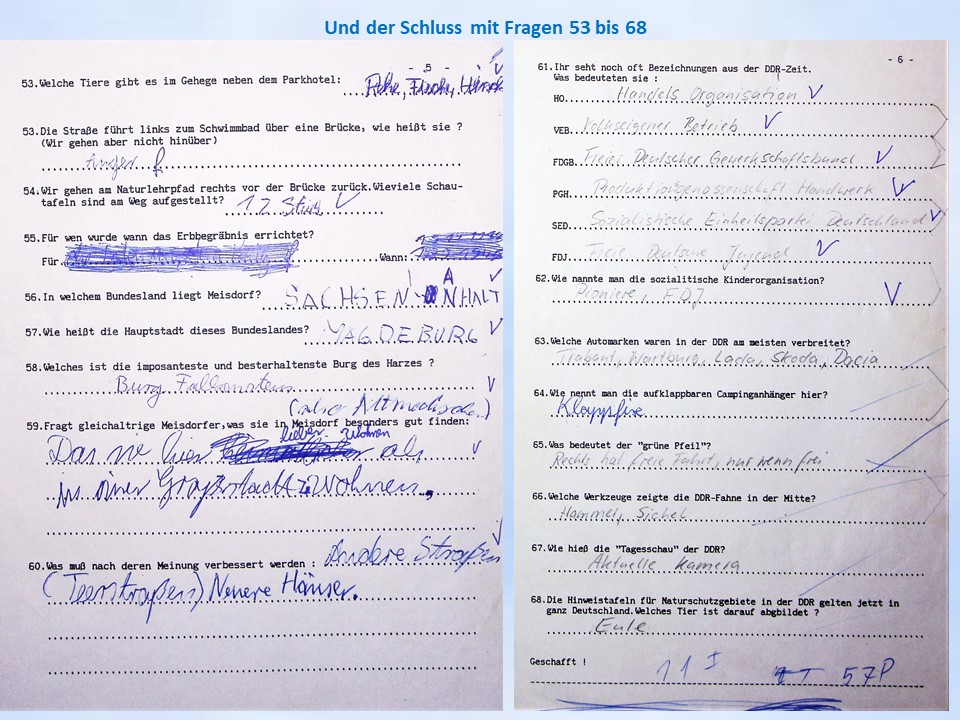 Und der Schluss mit Fragen 53 bis 68
- 5 -
53.Welche Tiere gibt es im Gehege neben dem Parkhotel:
Rehe, Fische, Hirsch
53.Die Straße führt links zum Schwimmbad über eine Brücke, wie heißt sie ?
(Wir gehen aber nicht hinüber)
Anger f
54.Wir gehen am Naturlehrpfad rechts vor der Brücke zurück.Wieviele Schau-
tafeln sind am Weg aufgestellt? 12 Stück
55.Für wen wurde wann das Erbbegräbnis errichtet?
Für Wann:
56.In welchem Bundesland liegt Meisdorf? SACHSEN-ANHALT
57.Wie heißt die Hauptstadt dieses Bundeslandes? MAGDEBURG
58.Welches ist die imposanteste und besterhaltenste Burg des Harzes ?
Burg Falkenstein
(also Altmodische)
59.Fragt gleichaltrige Meisdorfer,was sie in Meisdorf besonders gut finden:
lieber wohnen
Das sie hier als
in einer Großstadt z. wohnen.
60.Was muß nach deren Meinung verbessert werden : Andere Straßen
(Teerstraßen) Neuere Häuser.
- 6 -
61.Ihr seht noch oft Bezeichnungen aus der DDR-Zeit.
Was bedeuteten sie :
HO Handels Organisation
VEB Volkseigener Betrieb
FDGB. Freier Deutscher Gewerkschaftsbund
PGH. Produktionsgenossenschaft Handwerk
SED. Sozialistische Einheitspartei Deutschland
FDJ. Freie Deutsche Jugend
62.Wie nannte man die sozialitische Kinderorganisation?
Pioniere, FDJ
63.Welche Automarken waren in der DDR am meisten verbreitet?
Trabant, Wartburg, Lada, Skoda, Dacia
64.Wie nennt man die aufklappbaren Campinganhänger hier?
Klappfix
65.Was bedeutet der "grüne Pfeil"?
Rechts hat freie Fahrt, nur wenn frei
66.Welche Werkzeuge zeigte die DDR-Fahne in der Mitte?
Hammer, Sichel
67.Wie hieß die "Tagesschau" der DDR?
Aktuelle Kamera
68.Die Hinweistafeln für Naturschutzgebiete in der DDR gelten jetzt in
ganz Deutschland.Welches Tier ist darauf abgbildet ?
Eule
Geschafft !
57P